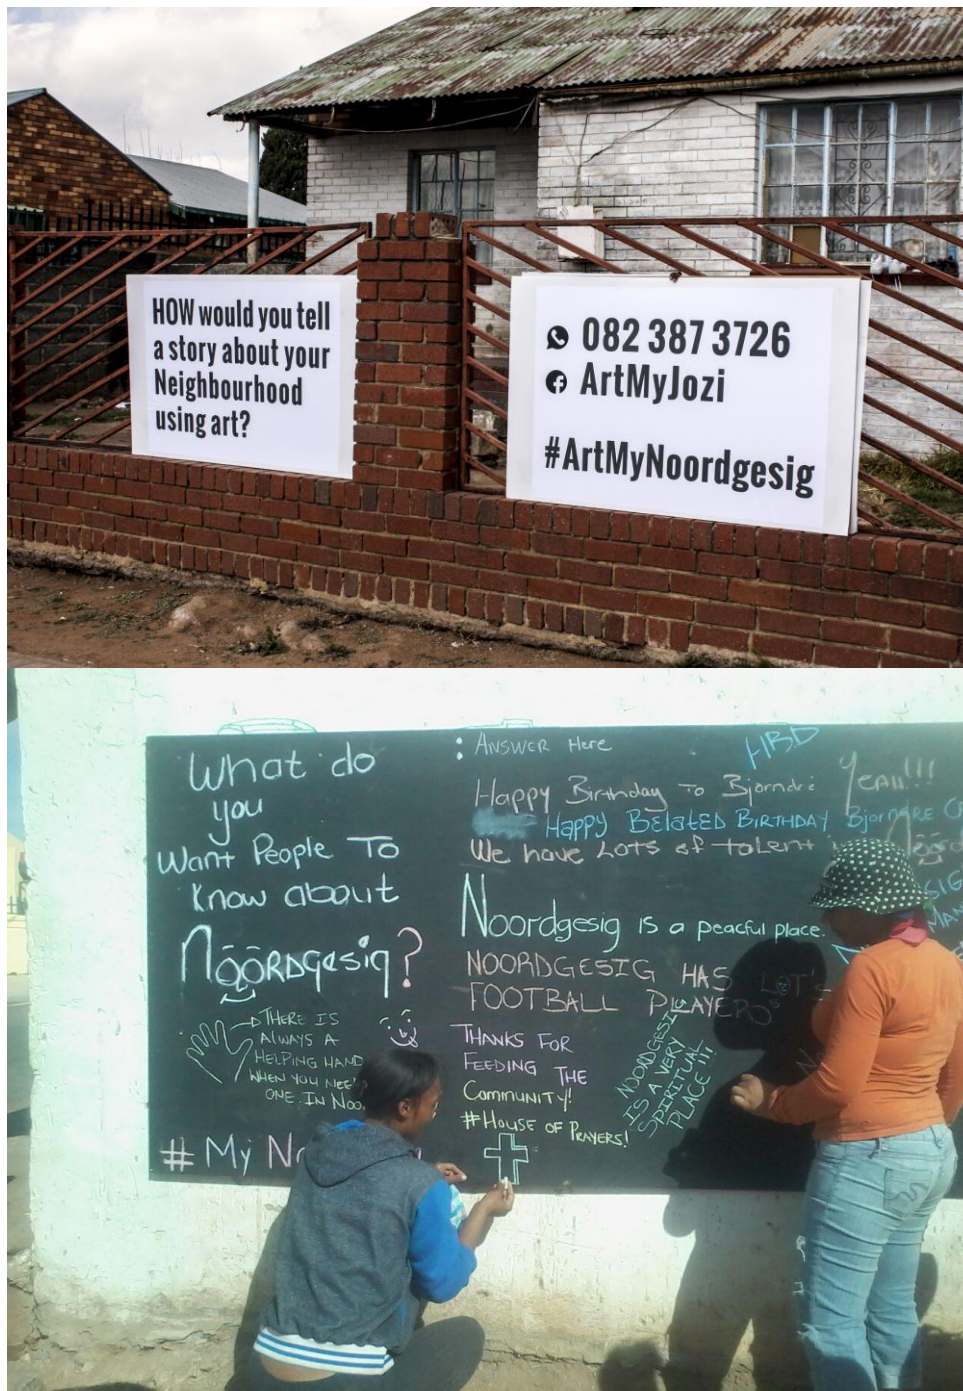 HOW would you tell
a story about your
Neighbourhood
using art?
082 387 3726
ArtMyJozi
#ArtMyNoordgesig
What do
you
Want People To
Know about
Noordgesig?
THERE IS
ALWAYS A
HELPING HAND
WHEN YOU
ONE IN
# My
: ANSWER Here
HBD
Happy Birthday To Bjorndré
YEAH!!!
Happy BELATED BIRTHDAY Bjorndre
We have LOTS of talent
Noordgesig IS a peaceful place.
NOORDGESIG HAS LOT'S
FOOTBALL PLAYERS
THANKS FOR
FEEDING THE
Community!
#HOUSE OF PRAYERS!
NOORDGESIG
IS A VERY
SPIRITUAL
PLACE!!!